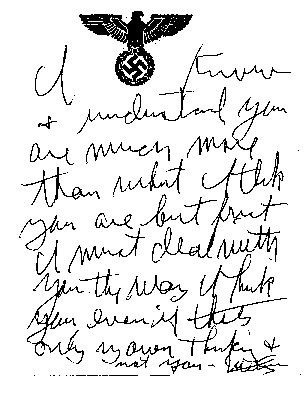 I know
& understand you
are much more
than what I think
you are but first
I must deal with
you the way I think
you even if that's
only my own thinking &
not you -